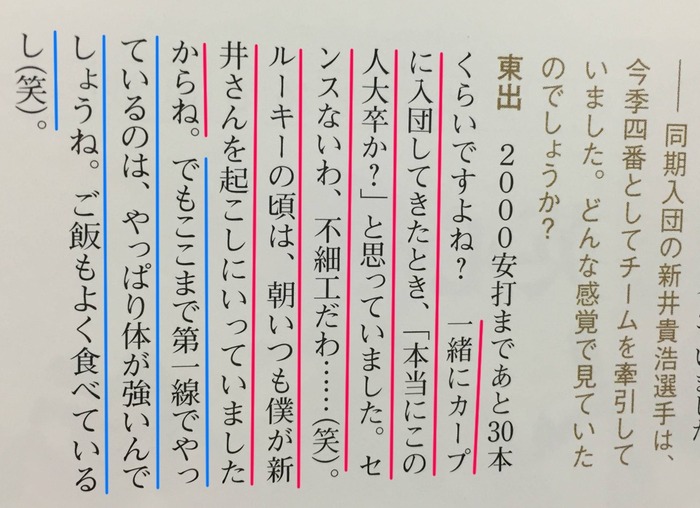 ―― 同期入団の新井貴浩選手は、
今季四番としてチームを牽引して
いました。どんな感覚で見ていた
のでしょうか?
東出 2000安打まであと30本
くらいですよね? 一緒にカープ
に入団してきたとき、「本当にこの
人大卒か?」と思っていました。セ
ンスないわ、不細工だわ……(笑)。
ルーキーの頃は、朝いつも僕が新
井さんを起こしにいっていました
からね。でもここまで第一線でやっ
ているのは、やっぱり体が強いんで
しょうね。ご飯もよく食べている
し(笑)。